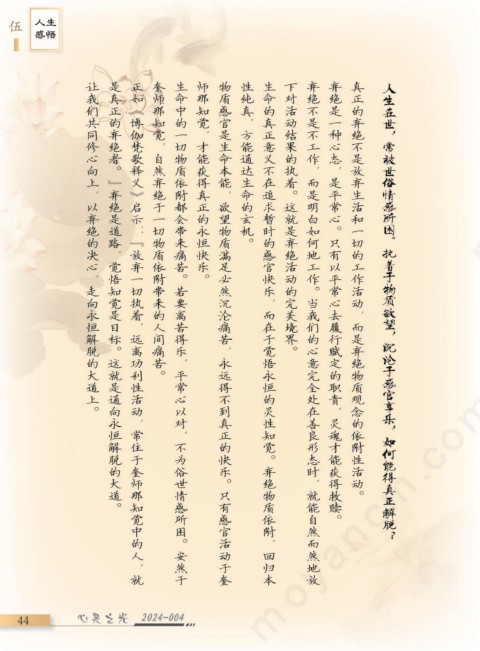 伍
人生
感悟
人生在世，常被世俗情感所困。执着于物质欲望，沉沦于感官享乐，如何能得真正解脱？
真正的弃绝不是放弃生活和一切的工作活动，而是弃绝物质观念的依附性活动。
弃绝是一种心态，是平常心。只有以平常心去履行赋定的职责，灵魂才能获得救赎。
弃绝不是不工作，而是明白如何地工作。当我们的心意完全处在善良形态时，就能自然而然地放
下对活动结果的执着。这就是弃绝活动的完美境界。
生命的真正意义不在追求暂时的感官快乐，而在于觉悟永恒的灵性知觉。弃绝物质依附，回归本
性纯真，方能通达生命的玄机。
物质感官是生命本能，欲望物质满足必然沉沦痛苦，永远得不到真正的快乐。只有感官活动于奎
师那知觉，才能获得真正的永恒快乐。
生命中的一切物质依附都会带来痛苦。若要离苦得乐，平常心以对，不为俗世情感所困。安然于
奎师那知觉，自然弃绝于一切物质依附带来的人间痛苦。
正如《博伽梵歌释义》启示：『放弃一切执着，远离功利性活动，常住于奎师那知觉中的人，就
是真正的弃绝者。』弃绝是道路，觉悟知觉是目标。这就是通向永恒解脱的大道。
让我们共同修心向上，以弃绝的决心，走向永恒解脱的大道上。
44
心灵之光 2024-004
moyancn.com